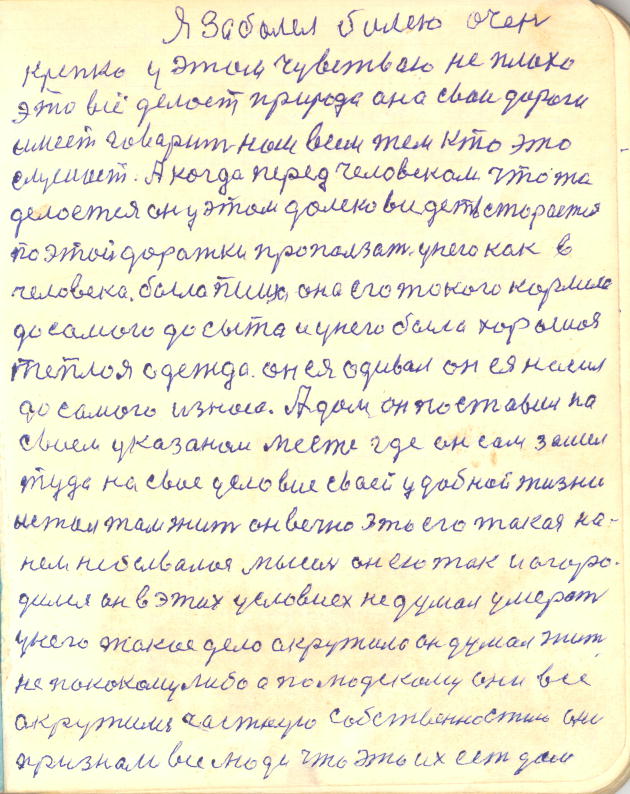 Я Заболел болею очен
крепко у этом чувствую не плохо
это всё делоет природа она свои дороги
имеет говарит нам всем тем кто это
слушает. А когда перед человеком что та
делоется он у этом долеко видеть старается
по этой даражки проползат унего как в
человека. была пища она его токого кормила
до самого до сыта и унего была хорошоя
теплоя одежда. он ея одивал он ея насил
до самого износа. А дом он поставил на
своем указаном месте где он сам зашел
туда на свое условие своей удобной жизни
и стал там жит он вечно эть его такая на-
нем небывалоя мысль он ею так и огоро-
дился он в этих условиех не думал умерат
унего такое дело акружило он думал жит
не по кокому либо а по людскому они все
акружилис частную собственностию они
признали все люди что эть их ест дом